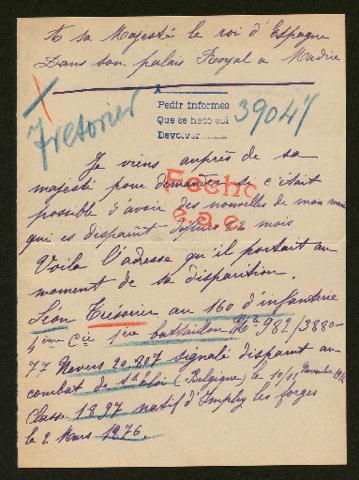 A sa Majesté le roi d'Espagne
Dans son palais Royal a Madrie
Tresorier
Pedir informes
Que se haco asi
Devolver
39047
Je viens auprès de sa
majesté pour demander si c'était
Fecho
possible d'avoir des nouvelles de mon mari
qui es disparut depuis mois
Voila l'adresse qu'il portait au
moment de sa disparition.
Léon Tresorier au 160 d'infanterie
4ème Cie 1re battaillon Nº 982/3880-
77 Nevers 20.207 signalé disparut au
combat de St Eloi (Belgique) le 10/11 Novembre 1914
Classe 1897 natif d'Imphy les forges
le 2 Mars 1876.